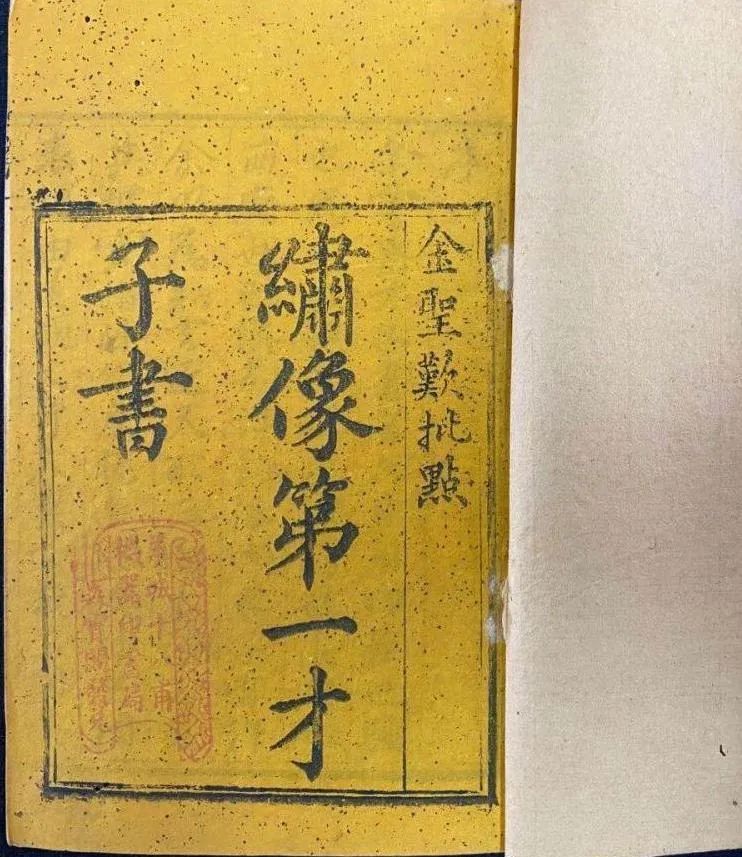 金聖歎批點
繡像第一才
子書